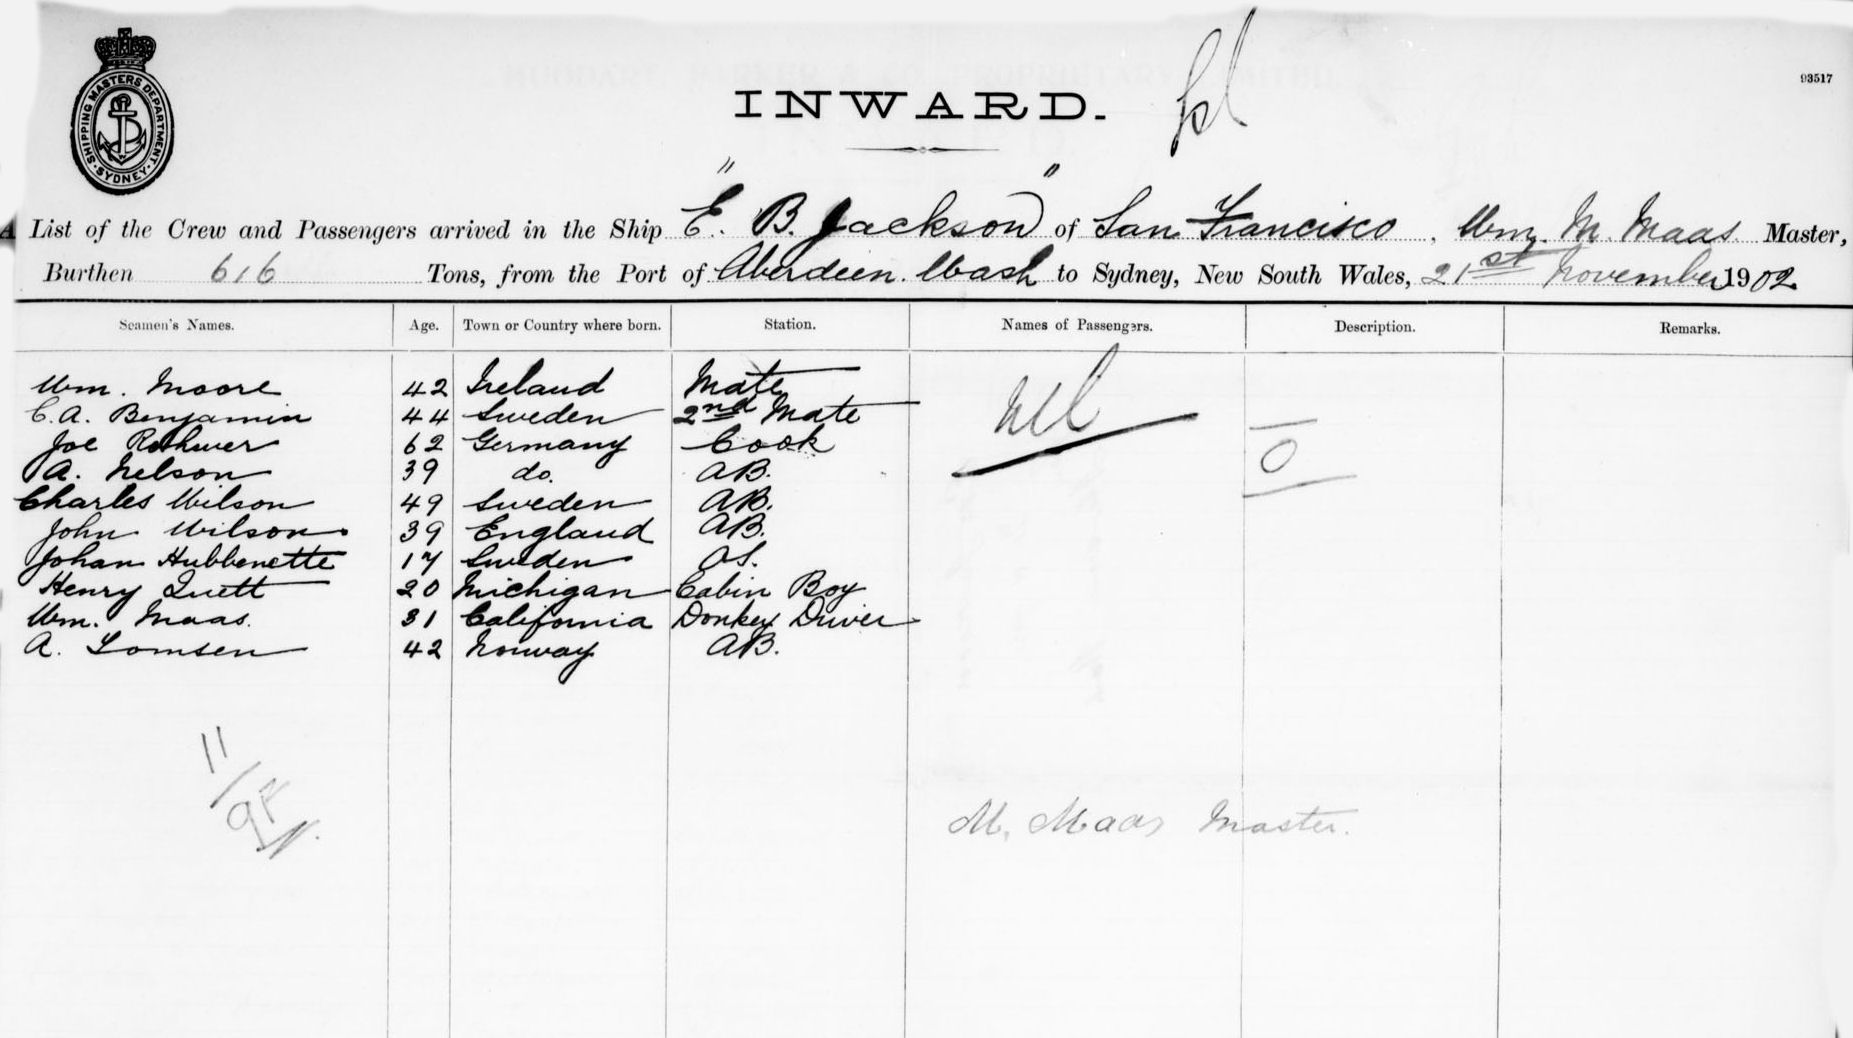 93517
INWARD.
SHIPPING MASTERS DEPARTMENT. SYDNEY.
A List of the Crew and Passengers arrived in the Ship "E. B. Jackson" of San Francisco, Wm. M. Maas Master,
Burthen 616 Tons, from the Port of Aberdeen. Wash to Sydney, New South Wales, 21st November 1902
Seamen's Names. Age. Town or Country where born. Station. Names of Passengers. Description. Remarks.
Wm. Moore 42 Ireland Mate Nil 0
C. A. Benjamin 44 Sweden 2nd Mate
Joe 62 Germany Cook
A. Nelson 39 do. AB.
Charles Wilson 49 Sweden AB.
John Wilson 39 England AB.
Johan Hubbenette 17 Sweden OS.
Henry 20 Michigan Cabin Boy
Wm. Maas. 31 California Donkey Driver
A. Lomsen 42 Norway AB.
11
M. Maas Master.